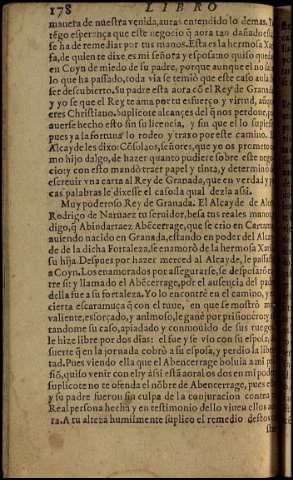 178 LIBRO
manera de nuestra venida, auras entendido lo demas. Y
tẽgo esperança que este negocio q̃ aora tan dañado està
se ha de remediar por tus manos. Esta es la hermosa Xari
fa, de quien te dixe es mi señora y esposa: no quiso quedar
en Coyn de miedo de su padre, porque aunque el no
lo que ha passado, toda via se temiò que este caso auia
ser descubierto. Su padre està aora cõ el Rey de Granada
y yo se que el Rey te ama por tu esfuerço y virtud, aunq̃
eres Christiano. Suplicote alcançes del q̃ nos perdone, por
auerse hecho esto sin su licencia, y sin que el lo supiesse,
pues ya la fortuna lo rodeo y traxo por este camino. El
Alcayde les dixo: Cõsolaos, señores, que yo os prometo
mo hijo dalgo, de hazer quanto pudiere sobre este nego
cio: y con esto mandò traer papel y tinta, y determinò
escreuir vna carta al Rey de Granada, que en verdad y po
cas palabras le dixesse el caso: la qual dezia assi.
Muy poderoso Rey de Granada. El Alcayde de Alora
Rodrigo de Naruaez tu seruidor, besa tus reales manos, y
digo, q̃ Abindarraez Abẽcerrage, que se crio en Cartama
auiendo nacido en Granada, estando en poder del Alcay
de de la dicha Fortaleza, se enamorò de la hermosa Xarifa
su hija. Despues por hazer merced al Alcayde, le passaste
a Coyn. Los enamorados por assegurarse, se desposarõ en
tre si: y llamado el Abẽcerrage, por el ausencia del padre
della fue a su fortaleza. Yo lo encontrè en el camino, y en
cierta escaramuça q̃ con el tuue, en que se mostrò muy
valiente, esforçado, y animoso, le ganè por prisionero: y con
tandome su caso, apiadado y conmouido de sus ruegos,
le hize libre por dos dias: el fue y se vio con su esposa, de
suerte q̃ en la jornada cobrò a su esposa, y perdio la liber
tad. Pues viendo ella que el Abencerrage boluia a mi pri
siõ, quiso venir con el: y assi estã aora los dos en mi poder
suplicote no te ofenda el nõbre de Abencerrage, pues el
y su padre fueron sin culpa de la conjuracion contra tu
Real persona hecha y en testimonio dello viuen ellos ao
ra. A tu alteza humilmente suplico el remedio destos